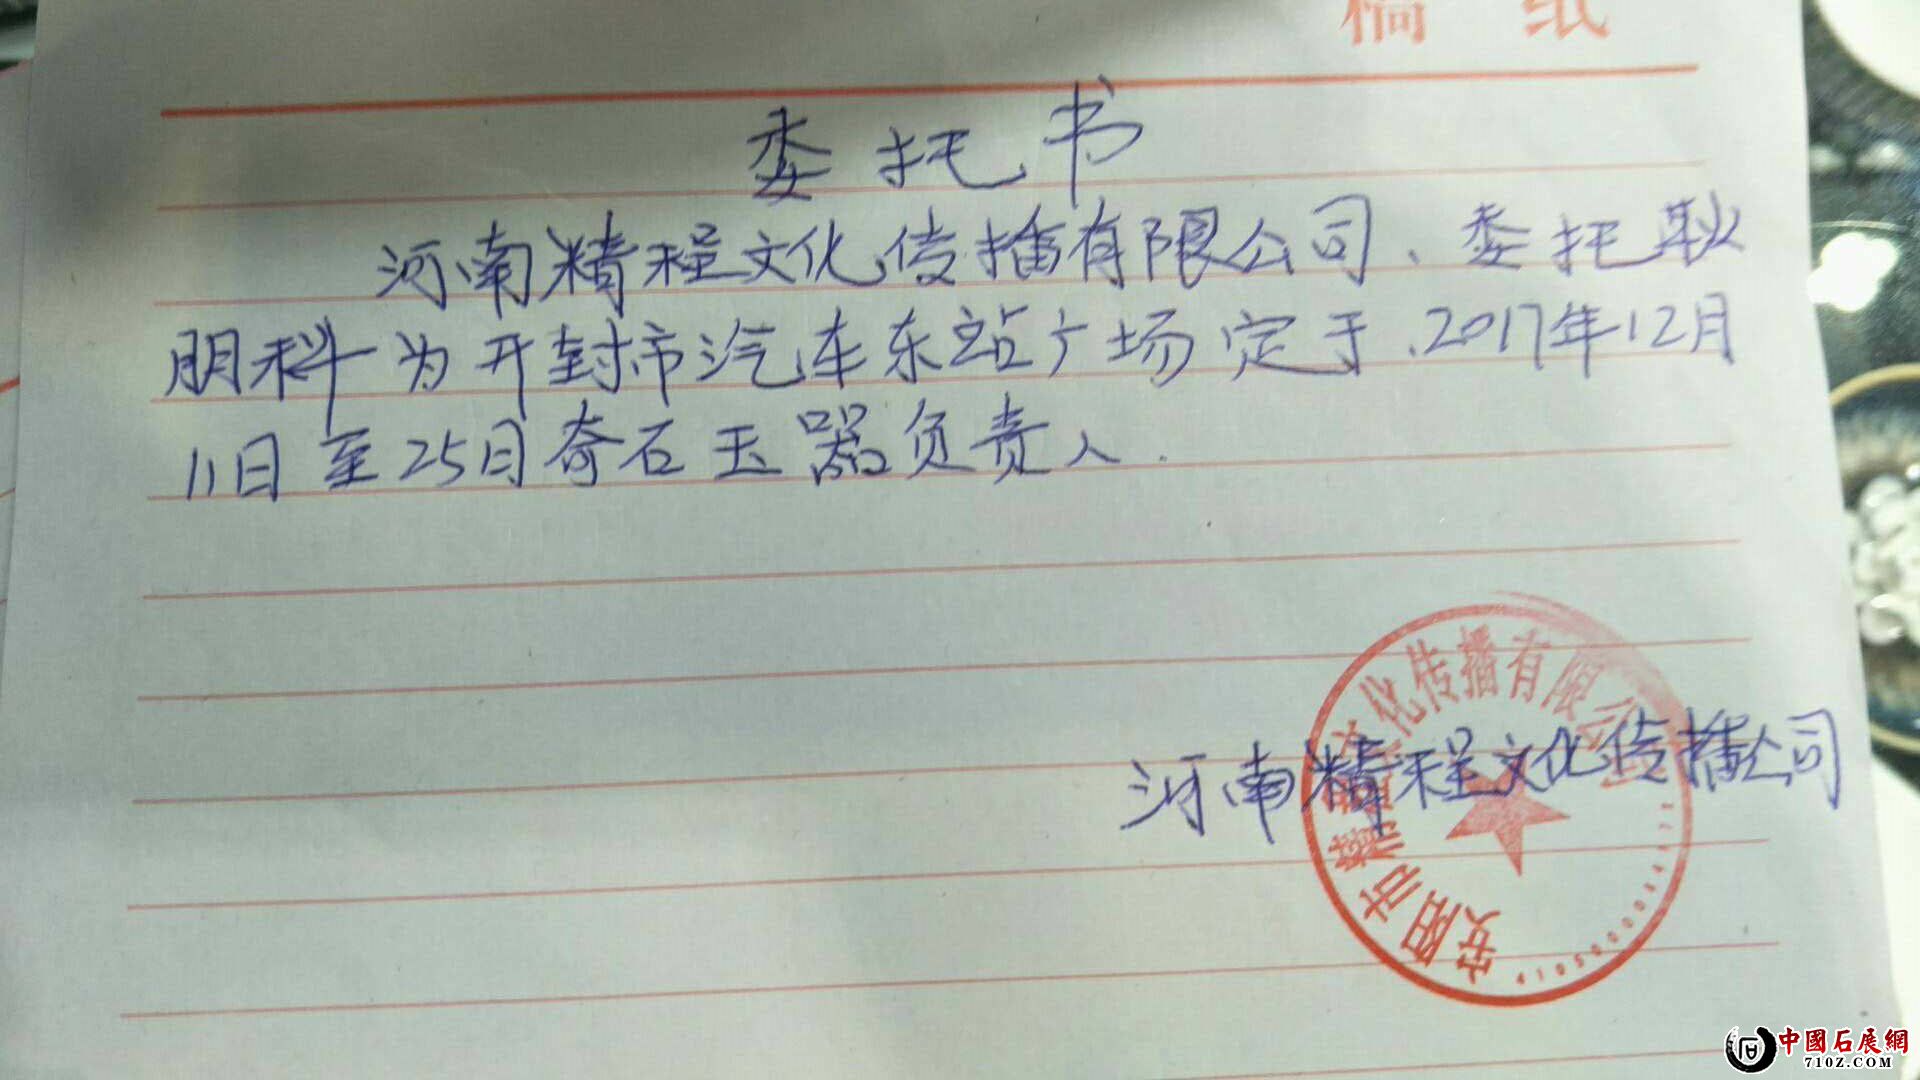 稿 纸
委托书
河南精程文化传播有限公司、委托耿
朋科为开封市汽车东站广场定于.2017年12月
11日至25日奇石玉器负责人.
河南精程文化传播公司
安阳市精程文化传播有限公
中國石展網
710Z.COM